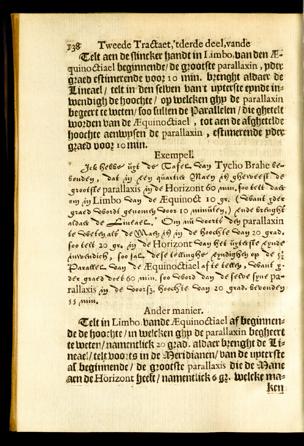 138 Tweede Tractaet, 'tderde deel, vande
Telt aen de slincker handt in Limbo van den Æ-
quinoctiael beginnende/ de grootste parallaxin, yder
graed estimerende voor 10 min. brenght aldaer de
Lineael/ telt in den selven van't upterste eynde in-
wendigh de hoochte/ op welcken ghy de parallaxin
begeert te weten/ soo sullen de Parallelen/ die ghetelt
worden van de Æquinoctiael, tot aen de afghetelde
hoochte aenwysen de parallaxin, estimerende yder
graed voor 10 min.
Exempel.
Ick hebbe uyt de Tafel van Tycho Brahe be-
vonden, dat in een quartier Maen
grootste parallaxin in de Horizont 60 min. soo telt daer
om in Limbo van de Æquinoct 10 gr. (want yder
graed wordt genomen voor 10 minuten) ende brenght
aldaer de Lineael. Om nu voorts den parallaxin
te weten als de Maen is in de hoochte van 20 grad.
soo telt 20 gr. in de Horizont van het uyterste eynde
inwendich, soo sal dese tellinghe eyndighen op de
Parallel van de Æquinoctiael af te tellen, want
der graed doet 60 min. soo word dan de selve pa-
rallaxis in de voorsz. hoochte van 20 grad. bevonden
55 min.
Ander manier.
Telt in Limbo vande Æquinoctiael af beginnen-
de de hoochte/ in welcken ghy de parallaxin begheert
te weten/ namentlick 20 grad. aldaer brenght de Li-
neael/ telt voorts in de Meridianen/ van de upterste
af beginnende/ de grootste parallaxis die de Mane
aen de Horizont heeft/ namentlick 6 gr. welcke ma-
ken